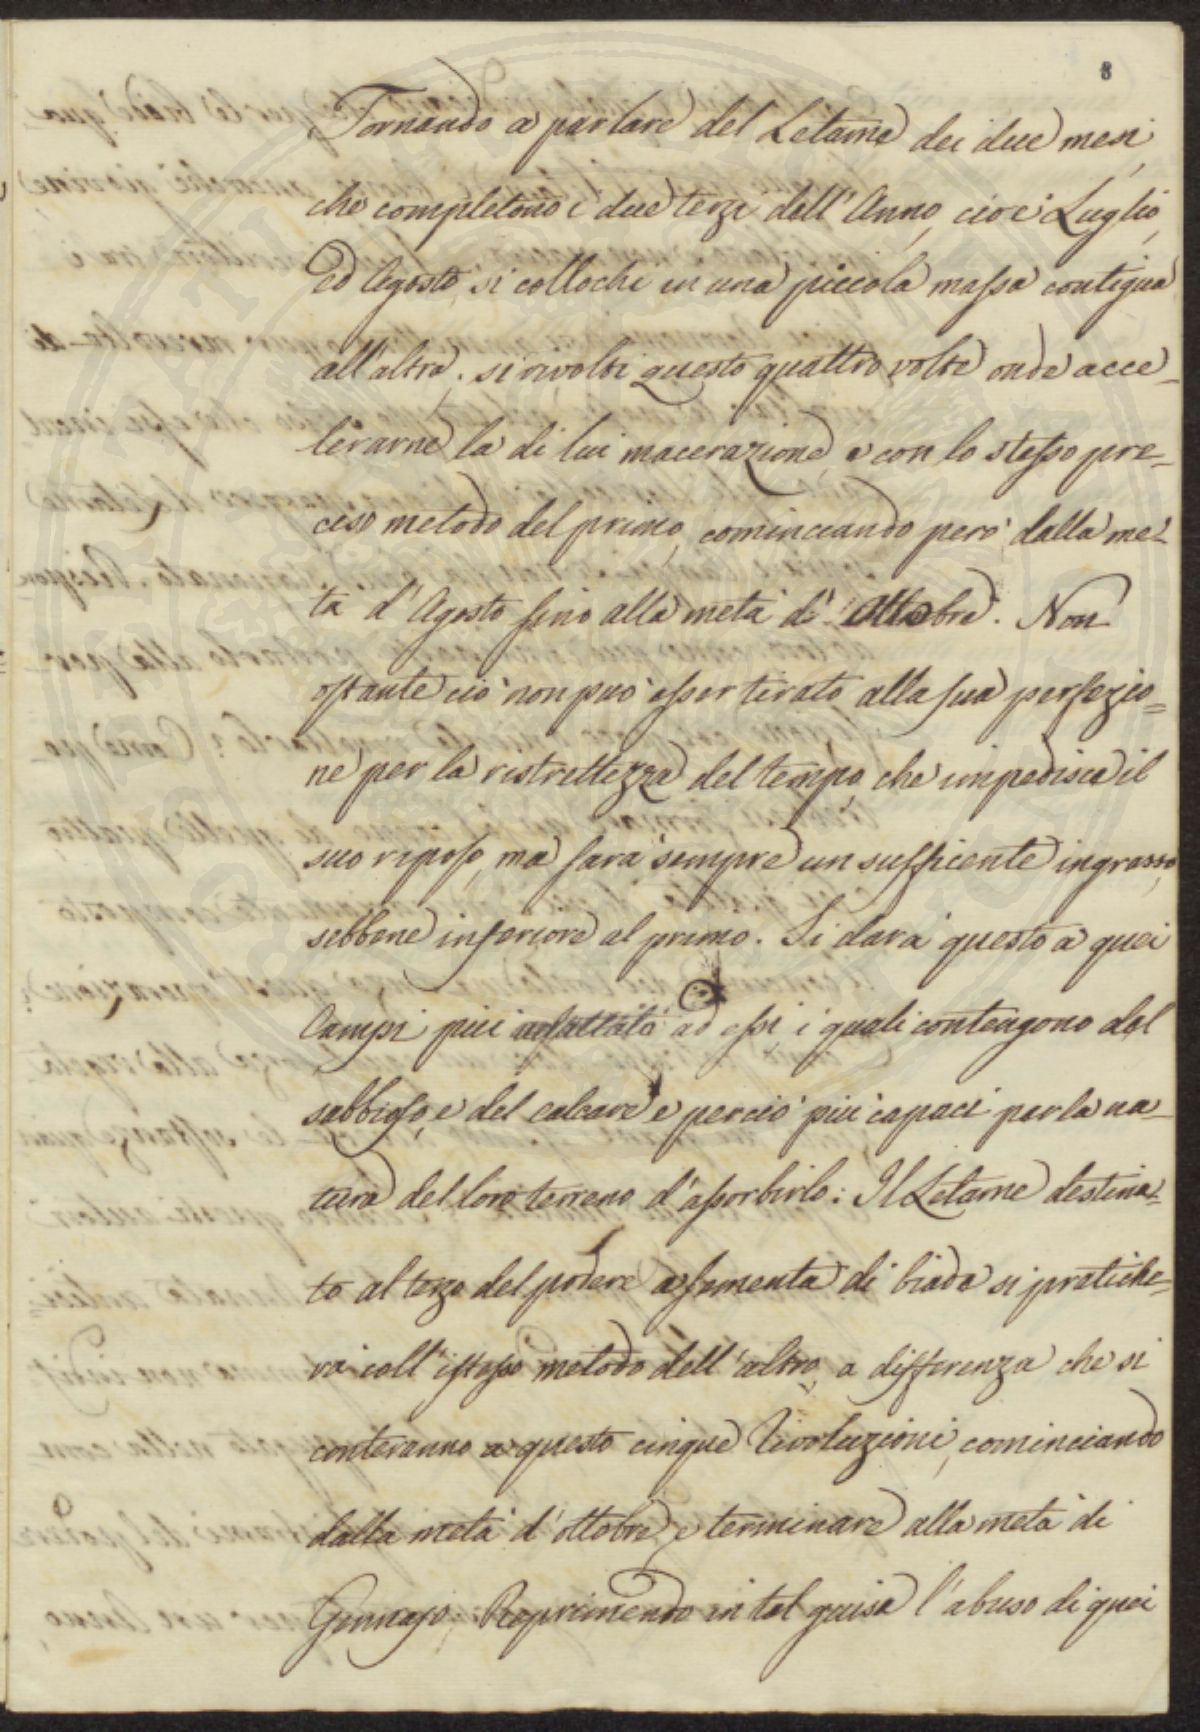 8
Tornando a parlare del Letame dei due mesi
che completono i due terzi dell'Anno, cioè Luglio,
ed Agosto, si collochi in una piccola massa contigua
all'altra, si rivolti questo quattro volte onde acce-
lerarne la di lui macerazione, e con lo stesso pre-
ciso metodo del primo, cominciando però dalla me-
tà d'Agosto fino alla metà di Ottobre. Non
ostante ciò non può esser tirato alla sua perfezio=
ne per la ristrettezza del tempo, che impedisce il
suo riposo, ma sarà sempre un sufficente ingrasso,
sebbene inferiore al primo. Si darà questo a quei
Campi più adattati ad essi, i quali contengono del
sabbioso, e del calcare e perciò più capaci per la na-
tura del loro terreno d'assorbirlo: Il Letame destina-
to al terzo del podere a sementa di biade si pratiche=
rà coll'istesso metodo dell'altro, a differenza che si
conteranno a questo cinque rivoluzioni, cominciando
dalla metà d'ottobre, e terminare alla metà di
Gennajo, Reprimendo in tal guisa l'abuso di quei